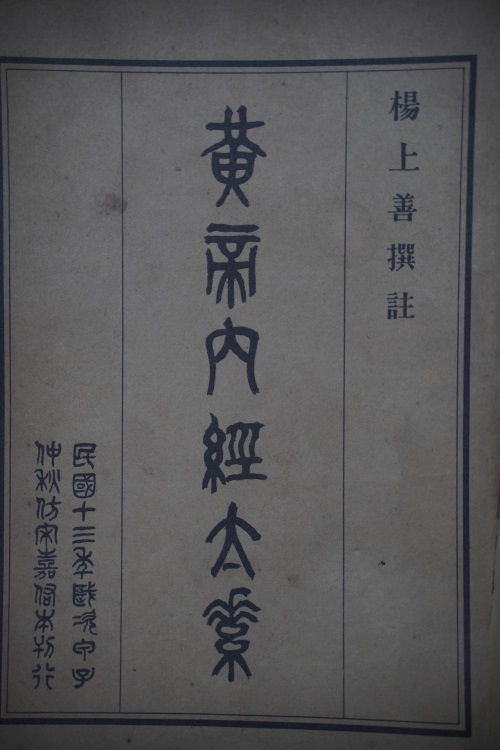 楊上善撰註
黃帝內經太素
民國十三季歲次甲子
仲秋仿宋嘉祐本刊行